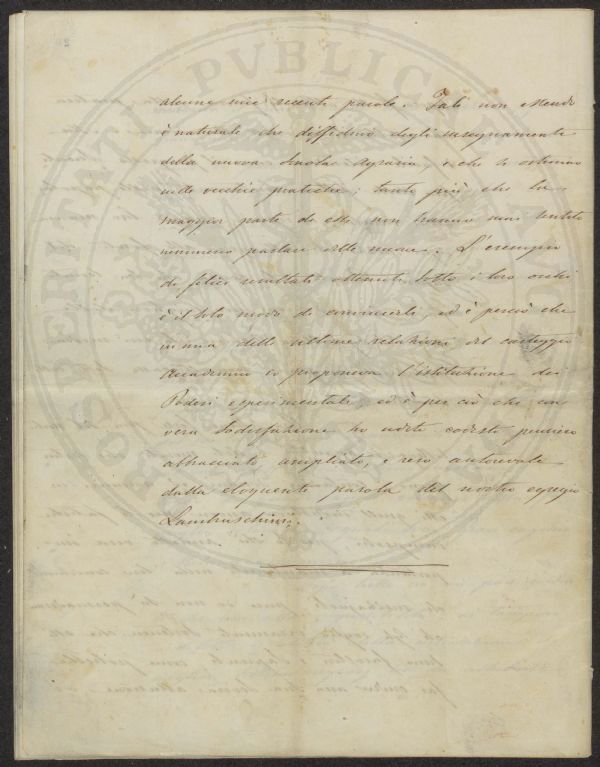 alcune mie recenti parole. Tali non essendo
è naturale che diffidino degli insegnamenti
della nuova Scuola Agraria, e che si ostinino
nelle vecchie pratiche; tanto più che la
maggior parte di essi non hanno mai sentito
nemmeno parlare delle nuove. L'esempio
di felici resultati ottenuti sotto i loro occhi
è il solo modo di convincerli, ed è perciò che
in una delle ultime relazioni del carteggio
Accademico io proponeva l'istituzione dei
Poderi esperimentali ed è per ciò che con
vera sodisfazione ho udito codesto pensiero
abbracciato, ampliato, e reso autorevole
dalla eloquente parola del nostro egregio
Lambruschini.
PROSPERITATI PVBLICAE AVG